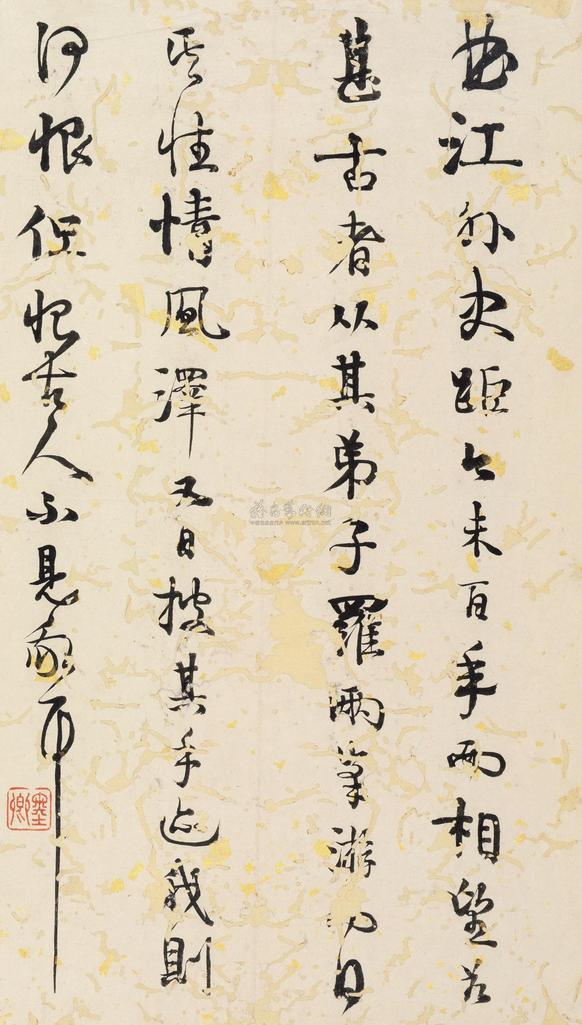 曲江外史距今未百年而相望若
甚古者从其弟子羅兩峯游
其性情風澤又日披其手迹我則
何恨但恨古人不見我耳
墨卿
雅昌藝術網
www.artron.net